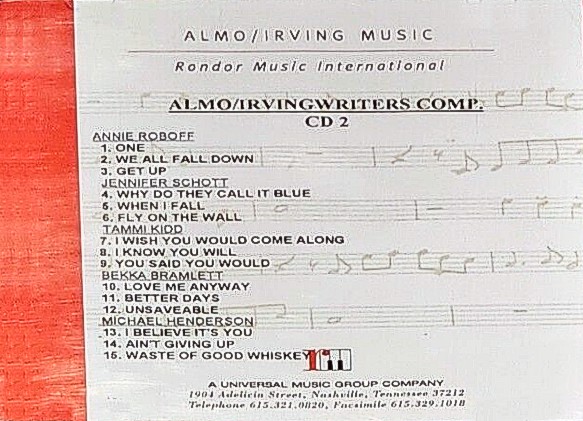 ALMO/IRVING MUSIC
Rondor Music International
ALMO/IRVINGWRITERS COMP.
CD 2
ANNIE ROBOFF
1. ONE
2. WE ALL FALL DOWN
3. GET UP
JENNIFER SCHOTT
4. WHY DO THEY CALL IT BLUE
5. WHEN I FALL
6. FLY ON THE WALL
TAMMI KIDD
7. I WISH YOU WOULD COME ALONG
8. I KNOW YOU WILL
9. YOU SAID YOU WOULD
BEKKA BRAMLETT
10. LOVE ME ANYWAY
11. BETTER DAYS
12. UNSAVEABLE
MICHAEL HENDERSON
13. I BELIEVE IT'S YOU
14. AIN'T GIVING UP
15. WASTE OF GOOD WHISKEY
A UNIVERSAL MUSIC GROUP COMPANY
1904 Adelicia Street, Nashville, Tennessee 37212
Telephone 615.321.0820, Facsimile 615.329.1018